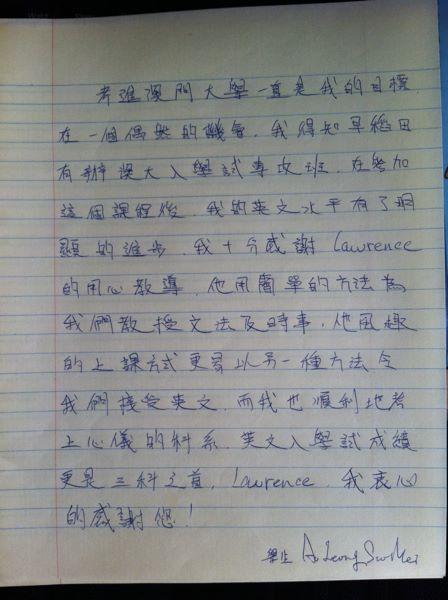 考進澳門大學一直是我的目標
在一個偶然的機會,我得知早稻田
有辦澳大入學試專攻班,在參加
這個課程後,我的英文水平有了明
顯的進步,我十分感謝 Lawrence
的用心教導,他用簡單的方法為
我們教授文法及時事,他風趣
的上課方式更是以另一種方法令
我們接受英文,而我也順利地考
上心儀的科系,英文入學試成績
更是三科之首,Lawrence,我衷心
的感謝您!
學生 Ao Ieong Sio Mei